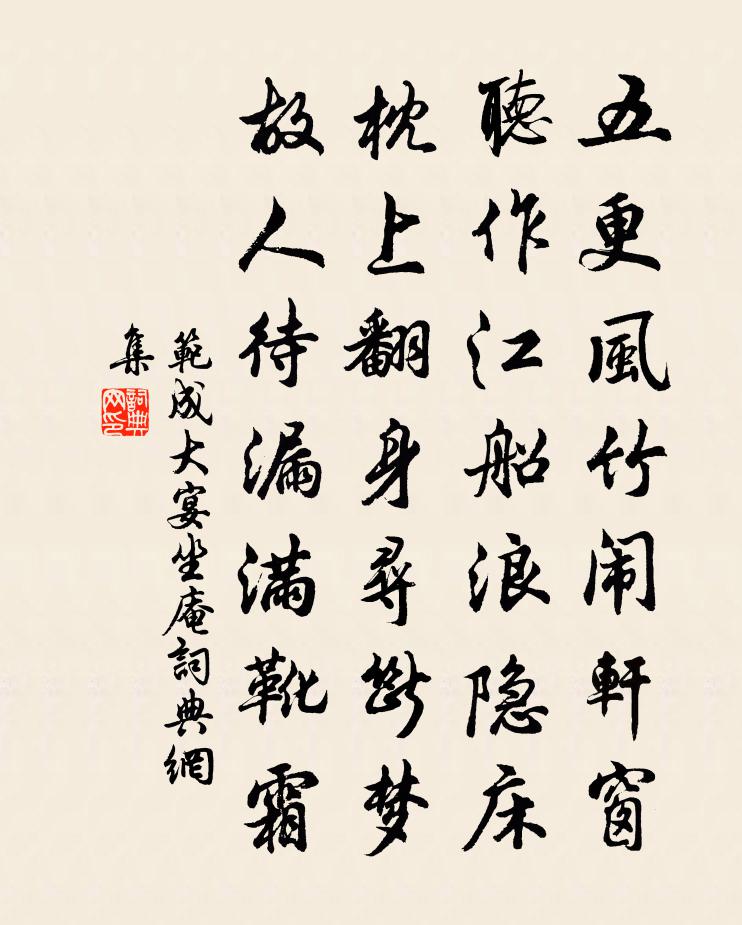 五更風竹闹軒窗
聽作江船浪隐床
枕上翻身尋斷梦
故人待漏满靴霜
範成大宴坐庵詞典網
集
詞典
网印